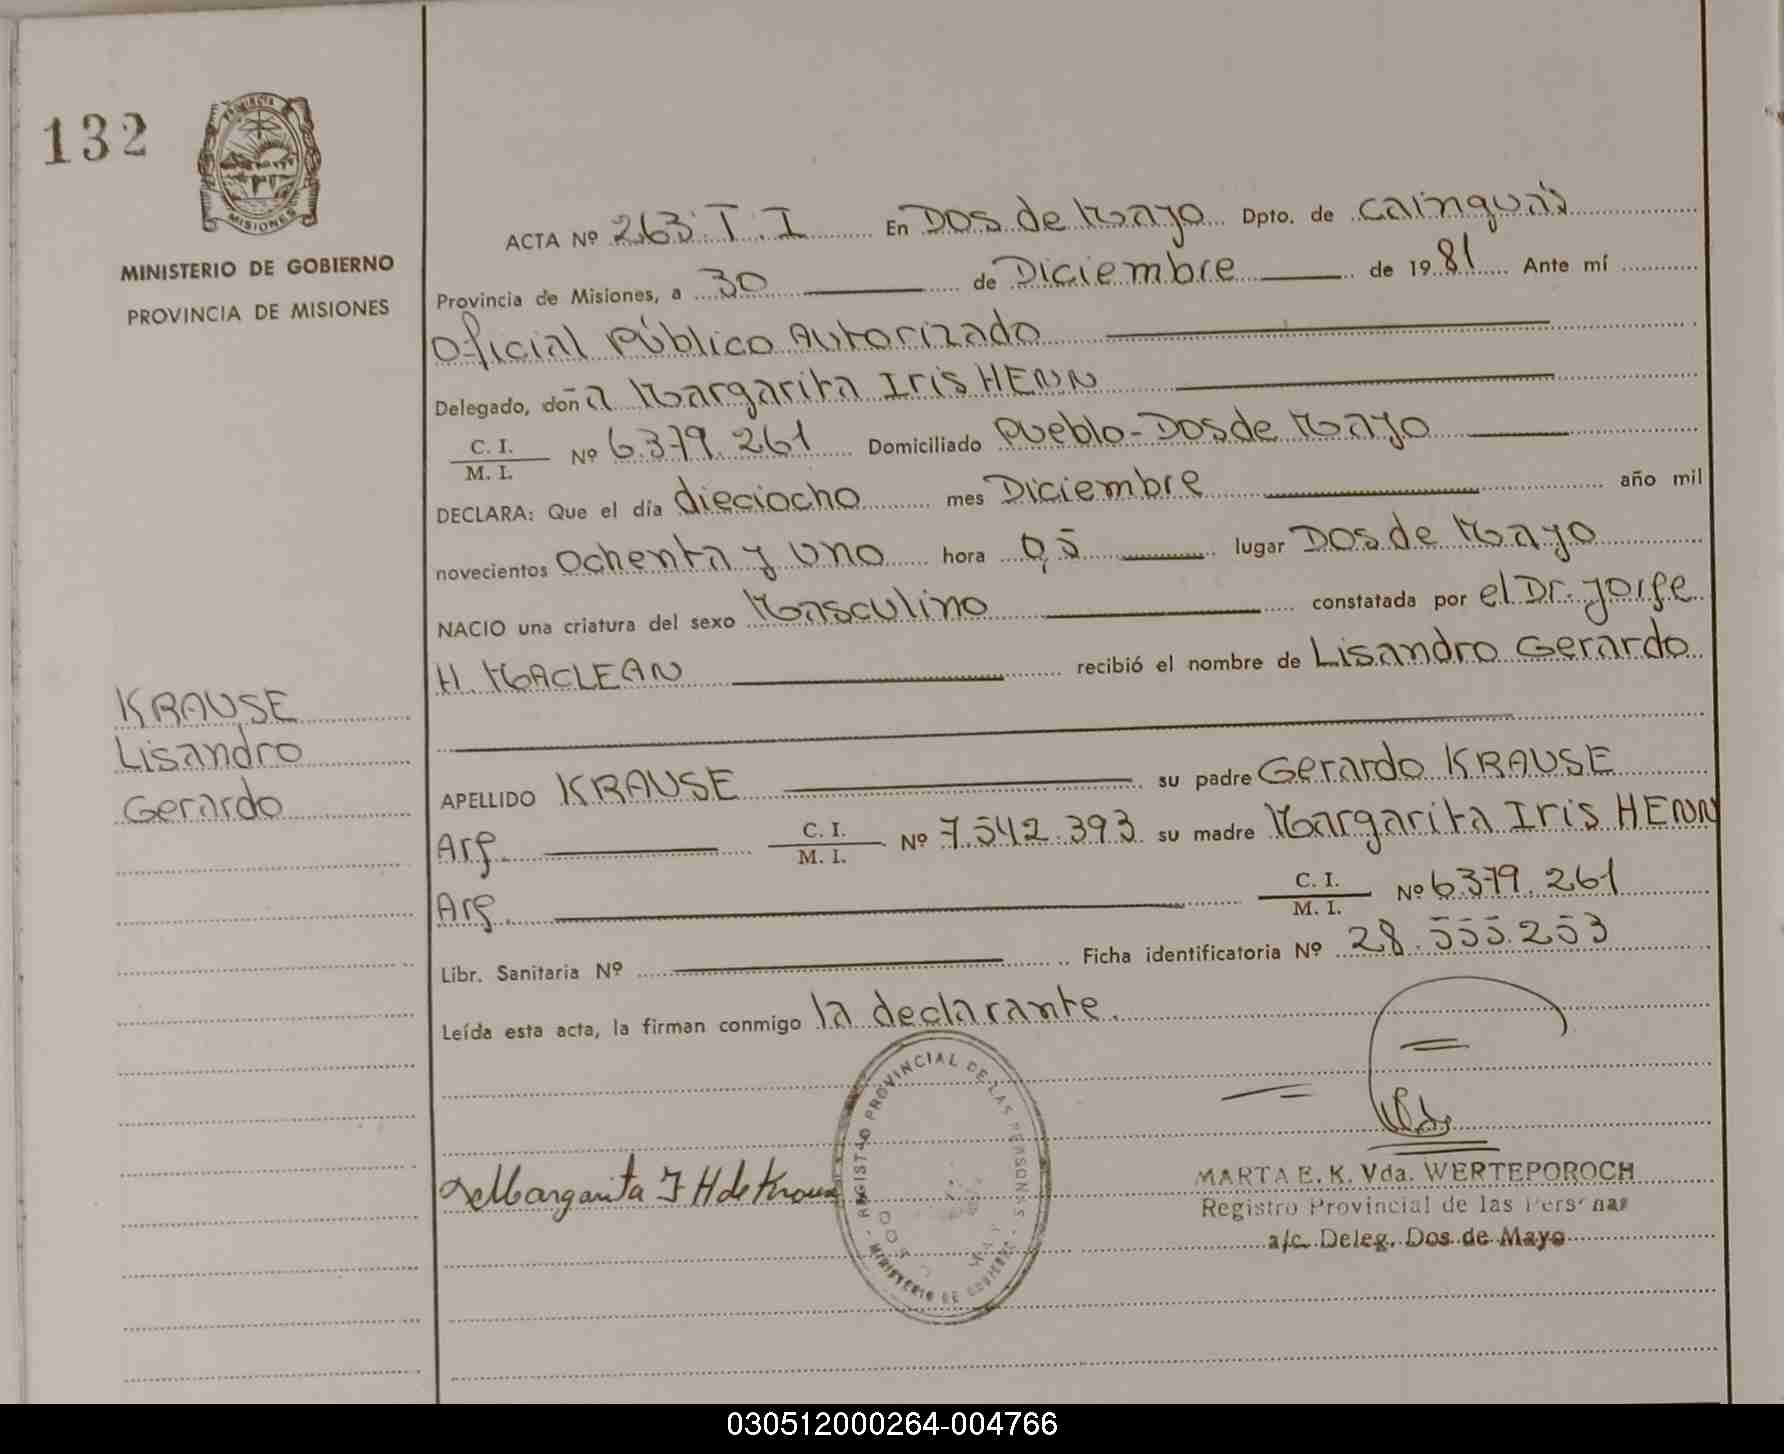 132
PROVINCIA
MISIONES
MINISTERIO DE GOBIERNO
PROVINCIA DE MISIONES
ACTA Nº 263. T. I En Dos de Mayo Dpto. de Cainguás
Provincia de Misiones, a 30 de Diciembre de 1981 Ante mí
Oficial Público Autorizado
Delegado, doña Margarita Iris HENN
C. I.
M. I. Nº 6.379.261 Domiciliado Pueblo-Dos de Mayo
DECLARA: Que el día dieciocho mes Diciembre año mil
novecientos Ochenta y uno hora 0,5 lugar Dos de Mayo
NACIO una criatura del sexo Masculino constatada por el Dr. Jorge
H. MACLEAN recibió el nombre de Lisandro Gerardo
KRAUSE
Lisandro
Gerardo
APELLIDO KRAUSE su padre Gerardo KRAUSE
Arg. C. I.
M. I. Nº 7.542.393 su madre Margarita Iris HENN
Arg. C. I.
M. I. Nº 6.379.261
Libr. Sanitaria Nº Ficha identificatoria Nº 28.555.253
Leída esta acta, la firman conmigo la declarante.
REGISTRO PROVINCIAL DE LAS PERSONAS
MINISTERIO DE GOBIERNO
Margarita I H de Krause
MARTA E. K. Vda. WERTEPOROCH
Registro Provincial de las Personas
a/c. Deleg. Dos de Mayo
030512000264-004766